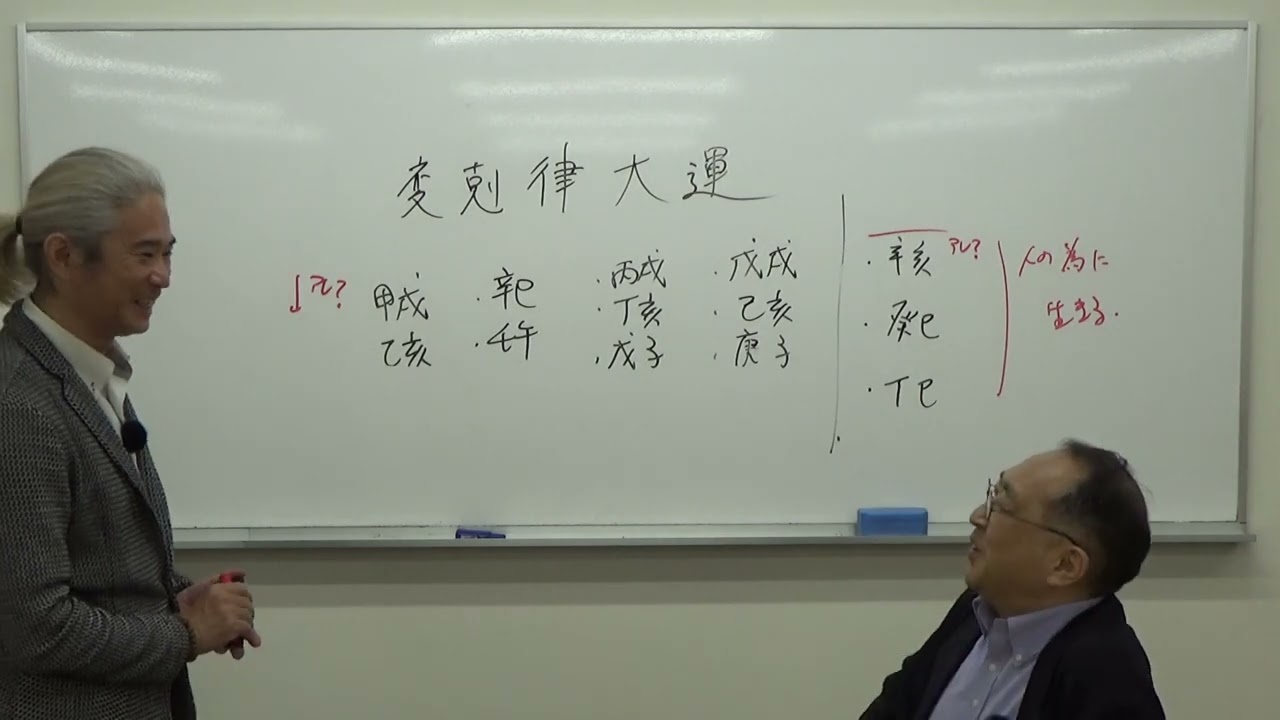 変剋律大運
↓アレ?
甲戌
乙亥
・辛巳
・壬午
・丙戌
・丁亥
・戊子
・戊戌
・己亥
・庚子
・辛亥 アレ?
・癸巳
・丁巳
人の為に
生きる.